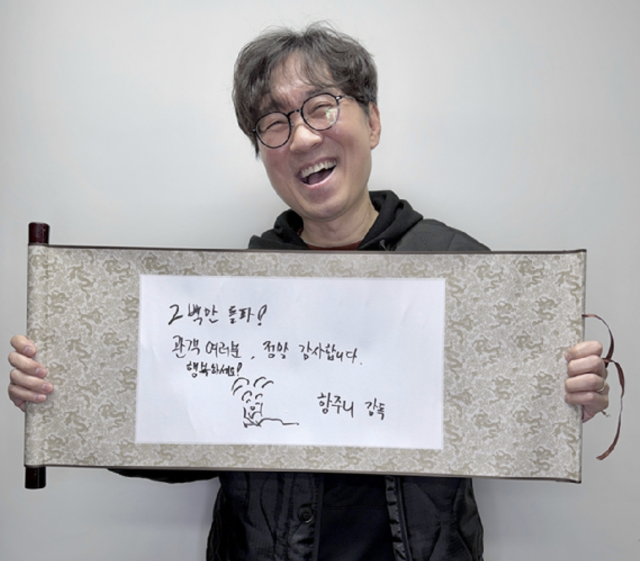 2백만 돌파!
관객 여러분, 정말 감사합니다.
행복하세요!
항주니 감독